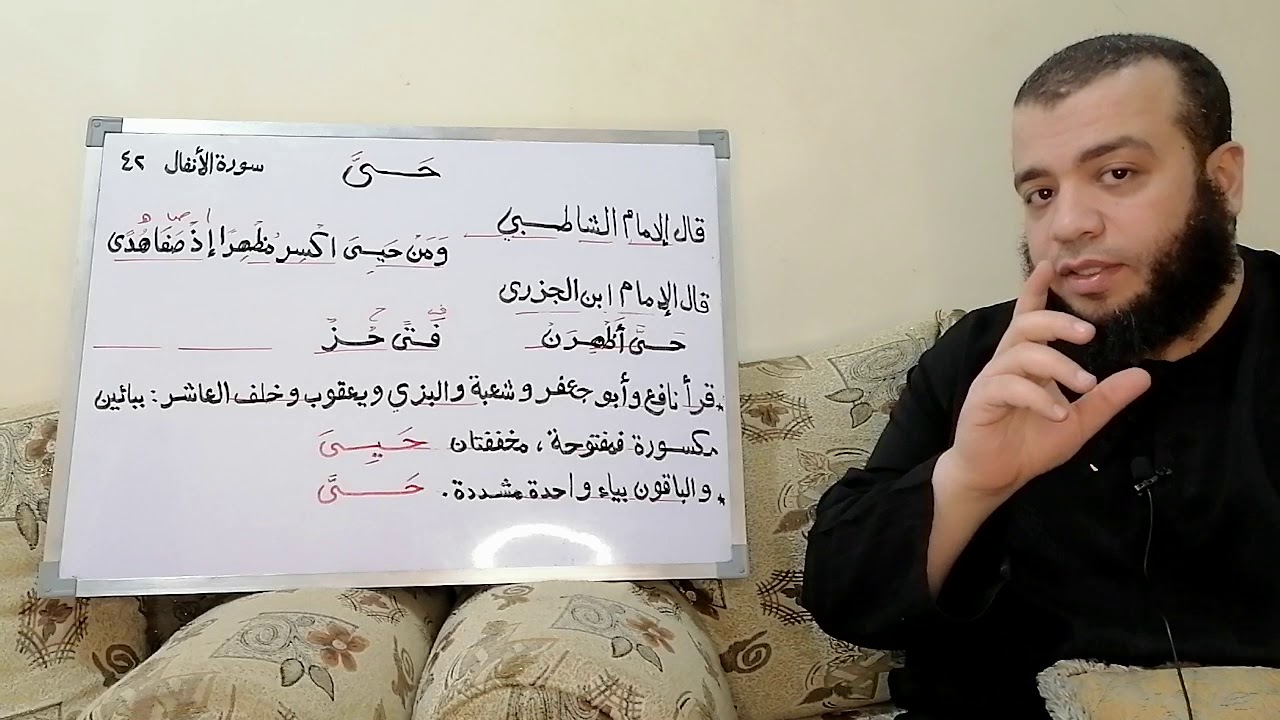 حَــىَّ سورة الأنفال ٤٢
قال الإمام الشاطبي
ا ص ه
وَمَنْ حَيِىَ اكْسِرْ مُظْهِرًا إِذْ صَفَا هُدًى
قال الإمام ابن الجزرى
ف ح
حَــىَّ أَظْهِرَنْ فَتًى حُــزْ
* قرأ نافع وأبو جعفر وشعبة والبزي ويعقوب وخلف العاشر: بيائين
مكسورة فمفتوحة، مخففتان حَــيِــىَ
* والباقون بياء واحدة مشددة. حَــىَّ